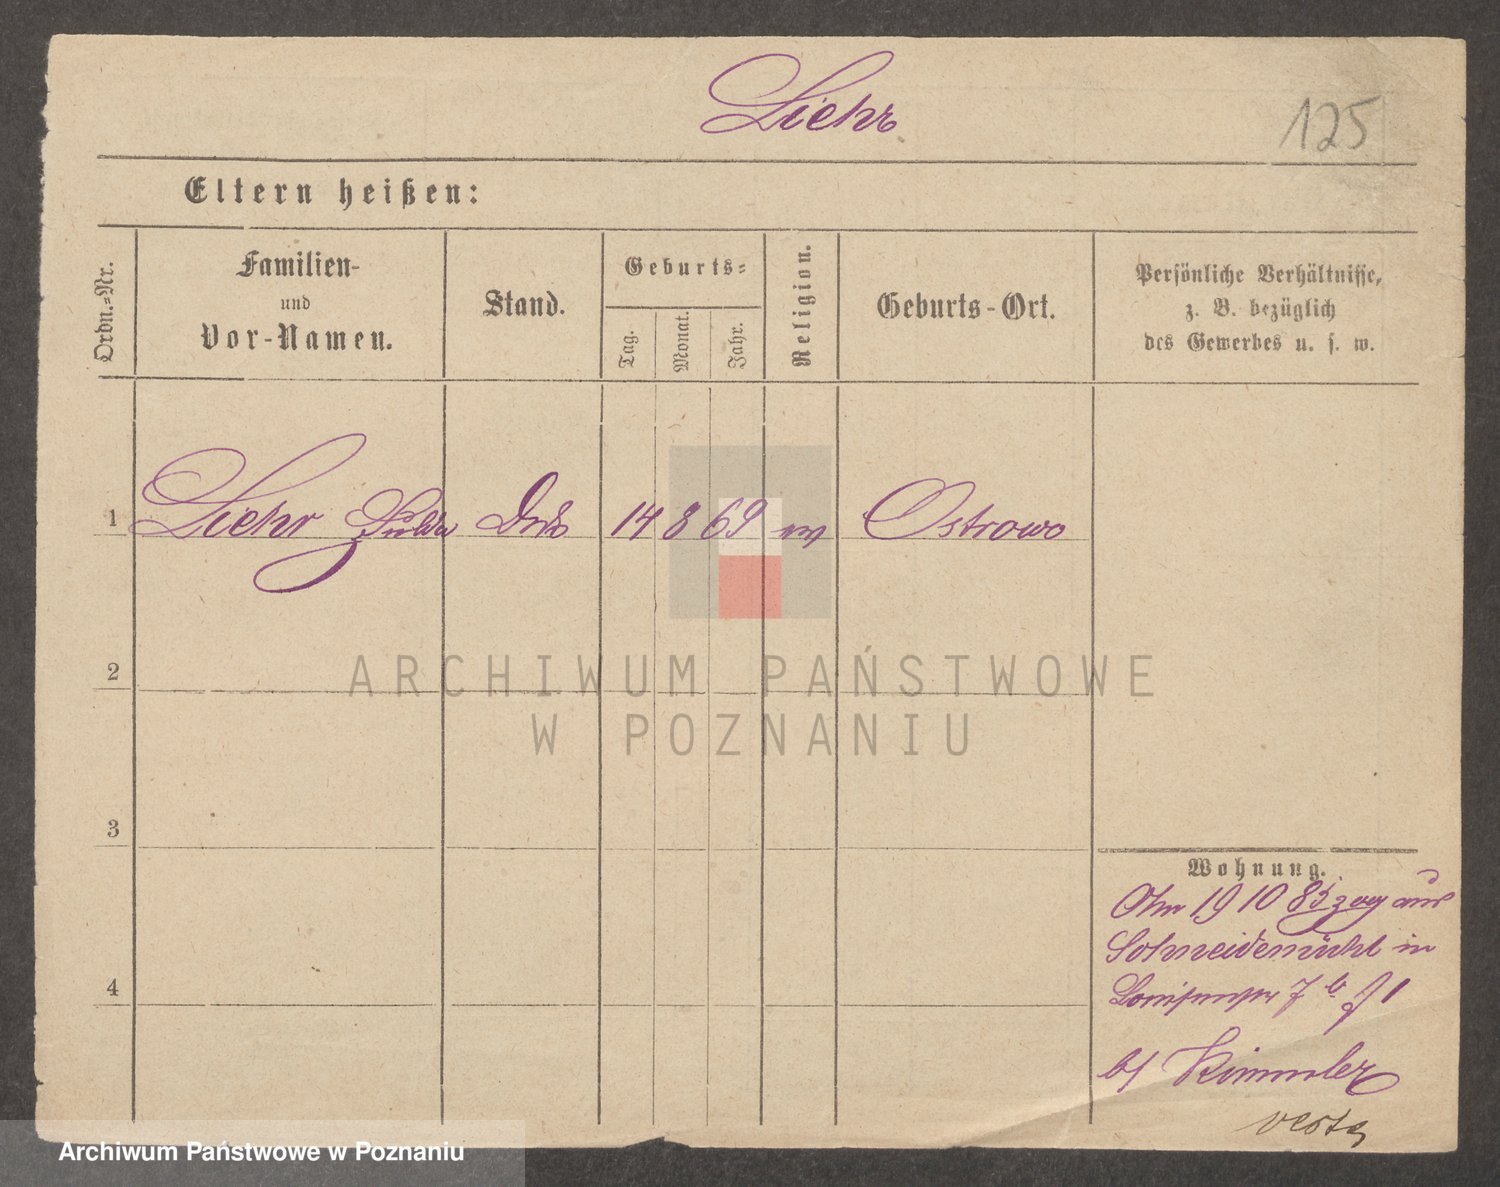 Liehr
125
Eltern heißen:
Ordn.=Nr.
Familien-
und
Vor-Namen.
Stand.
Geburts=
Tag.
Monat.
Jahr.
Religion.
Geburts-Ort.
Persönliche Verhältnisse,
z. B. bezüglich
des Gewerbes u. s. w.
1 Liehr 14 8 69 Ostrowo
2
3
4
ARCHIWUM PAŃSTWOWE
W POZNANIU
Wohnung.
19 10 85 zog aus
Schneidemühl in
Louisenstr 7 b
b/ Kimmler
Archiwum Państwowe w Poznaniu